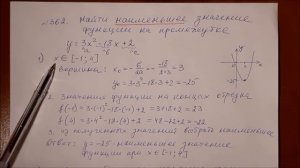 №362. Найти наименьшее значение
функции на промежутке
y = 3x² - 18x + 2
a b c
1) x ∈ [-1; 4]
Вершина: x₀ = -b/2a = -(-18)/(2·3) = 3
y₀ = 3·3² - 18·3 + 2 = -25
2. Значения функции на концах отрезка
f(-1) = 3·(-1)² - 18·(-1) + 2 = 3+18+2 = 23
f(4) = 3·4² - 18·4 + 2 = 48-72+2 = -22
3. из полученных значений выбрать наименьшее
Ответ: y = -25 наименьшее значение
функции при x ∈ [-1; 4]